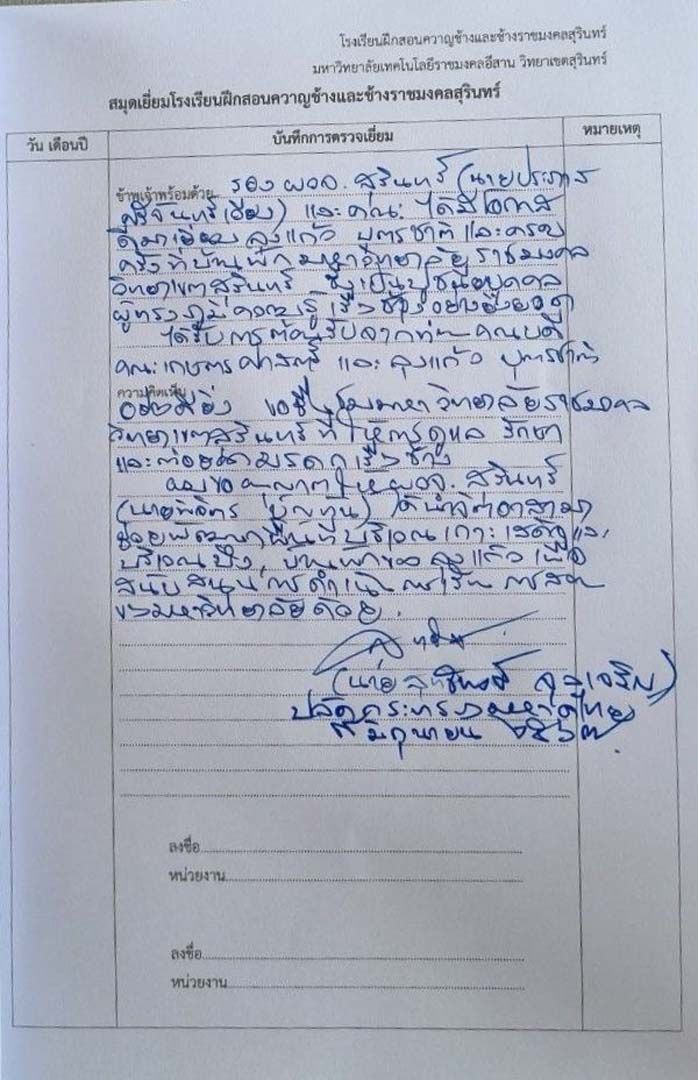 โรงเรียนฝึกสอนควาญช้างและช้างราชมงคลสุรินทร์
มหาวิทยาลัยเทคโนโลยีราชมงคลอีสาน วิทยาเขตสุรินทร์
สมุดเยี่ยมโรงเรียนฝึกสอนควาญช้างและช้างราชมงคลสุรินทร์
วัน เดือนปี บันทึกการตรวจเยี่ยม หมายเหตุ
ข้าพเจ้าพร้อมด้วย รอง ผวจ. สุรินทร์ (นายประภาส
และคณะ ได้มีโอกาส
ลุงแก้ว บุตรชาติ และครอบ
ครัว ที่บ้านพักมหาวิทยาลัยราชมงคล
วิทยาเขตสุรินทร์ ซึ่งเป็นปูชนียบุคคล
ผู้ทรงภูมิความรู้ เรื่องช้างอย่างยิ่งยวด
ได้รับการต้อนรับจากท่านคณบดี
คณะเกษตรศาสตร์ และลุงแก้ว บุตรชาติ
ความคิดเห็น
อย่างยิ่ง ขอชื่นชมมหาวิทยาลัยราชมงคล
วิทยาเขตสุรินทร์ที่ให้การดูแล รักษา
และต่อยอดมรดกเรื่องช้าง
ผมขออนุญาตให้ ผวจ. สุรินทร์
(นายพิจิตร บุญทัน) ได้นำจิตอาสามา
ช่วยพัฒนาพื้นที่บริเวณเกาะ
บริเวณบึง, บ้านพักของลุงแก้ว เพื่อ
สนับสนุนการดำเนินการเรียนการสอน
ของมหาวิทยาลัยด้วย.
(นายสุทธิพงษ์ จุลเจริญ)
ปลัดกระทรวงมหาดไทย
มิถุนายน ๒๕๖๗
ลงชื่อ
หน่วยงาน
ลงชื่อ
หน่วยงาน